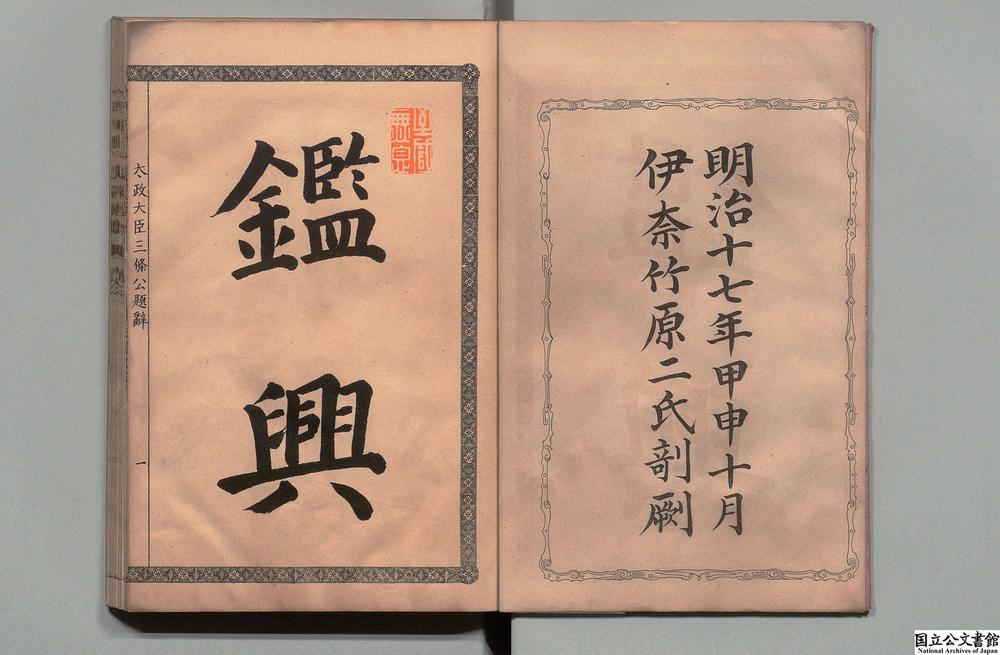 明治十七年甲申十月
伊奈竹原二氏剞劂
鑑興
太政大臣三條公題辭
一
国立公文書館
National Archives of Japan